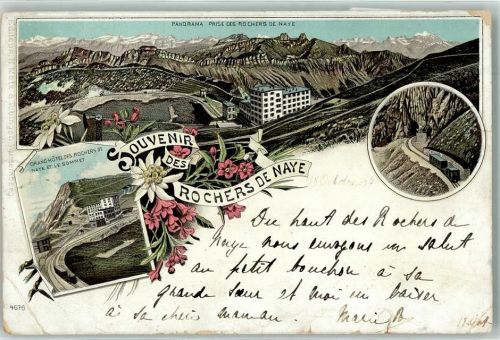 PANORAMA PRISE DES ROCHERS DE NAYE
GRAND HÔTEL DES ROCHERS DE
NAYE ET LE SOMMET
SOUVENIR
DES
ROCHERS DE NAYE
Du haut des Rochers de
Naye nous envoyons un salut
au petit bouchon à sa
grande sœur et moi un baiser
à sa chère maman. Marie B
4676